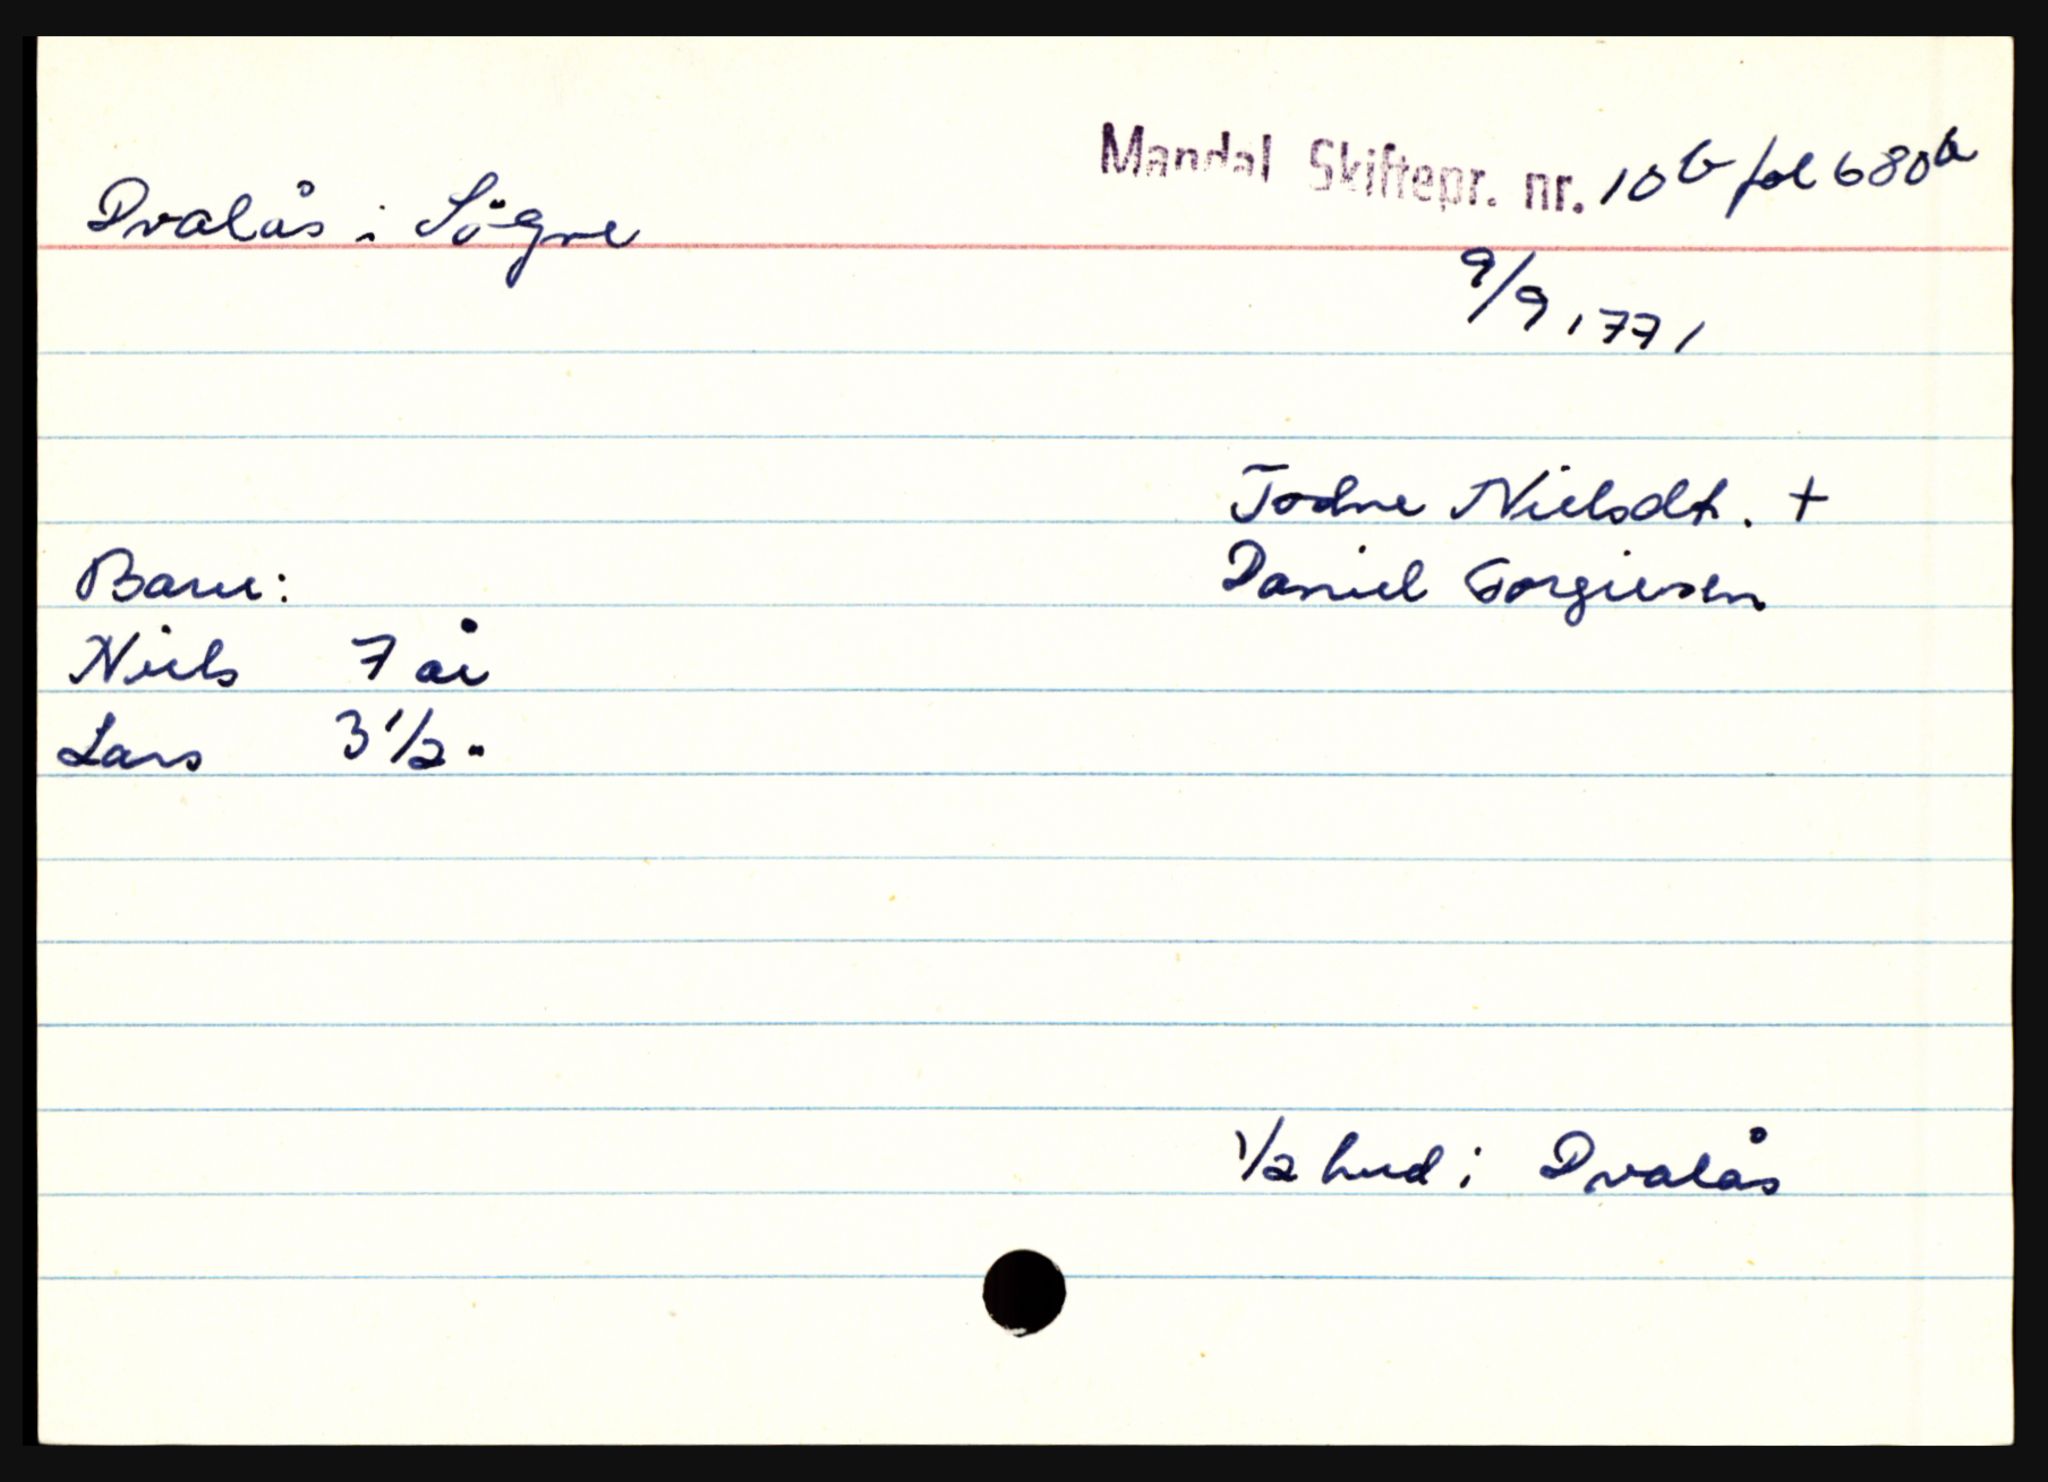 Mandal Skiftepr. nr. 10b fol 680b
Dvalås i Sögne
9/9 1771
Todne Nielsdt. +
Barn:
Daniel Torgiersen
Niels 7 år
Lars 3 1/2 "
1/2 hud i Dvalås